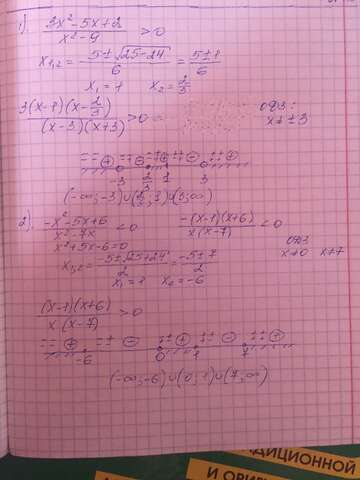 1). (3x²-5x+2)/(x²-9) > 0
x₁,₂ = (5±√25-24)/6 = (5±1)/6
x₁=1 x₂=2/3
3(x-1)(x-2/3)/((x-3)(x+3)) > 0 =
ОДЗ:
x≠±3
-- ⊕ -+ ⊖ -+ ⊕ ++ ⊖ ++ ⊕
-3 2/3 1 3
(-∞;-3)∪(2/3;1)∪(3;∞)
2). (-x²-5x+6)/(x²-7x) < 0 -(x-1)(x+6)/(x(x-7)) < 0
x²+5x-6=0
ОДЗ
x≠0 x≠7
x₁,₂ = (-5±√25+24)/2 = (-5±7)/2
x₁=1 x₂=-6
(x-1)(x+6)/(x(x-7)) > 0
-- ⊕ -+ ⊖ ++ ⊕ ++ ⊖ ++ ⊕
-6 0 1 7
(-∞;-6)∪(0;1)∪(7;∞)
ДИЦИОННОЙ
И ОРИ